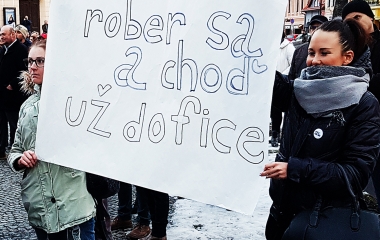 rober sa
a chod
už dofice